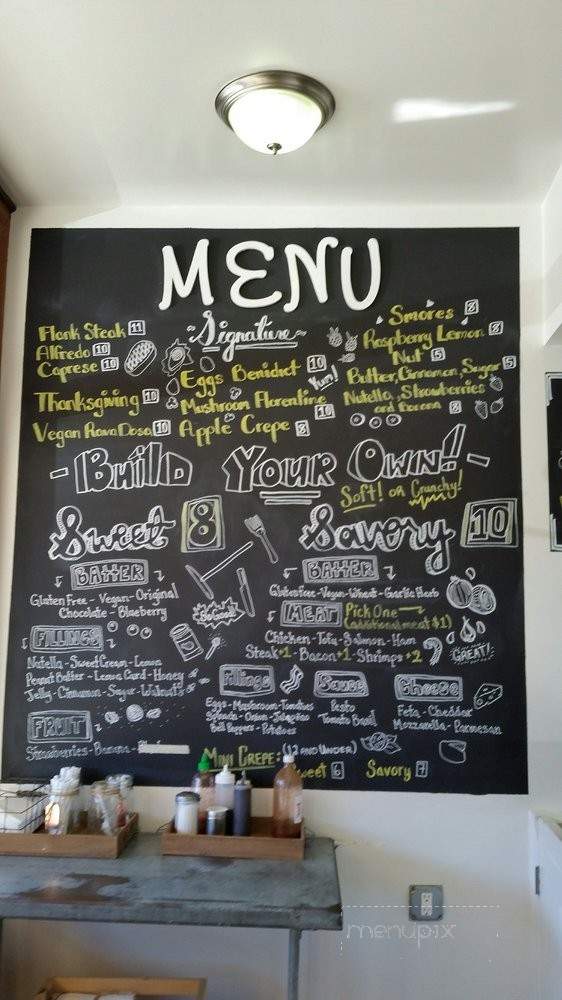 MENU
~Signature~
Flank Steak 11
Alfredo 10
Caprese 10
Thanksgiving 10
Vegan Rava Dosa 10
Eggs Benidict 10
Yum!
Mushroom Florentine 10
Apple Crepe 8
Smores 8
Raspberry Lemon 8
Nut 5
Butter, Cinnamon, Sugar 5
Nutella, Strawberries
and Banana 8
- Build Your Own!! -
Soft! or Crunchy!
Sweet 8
Batter
Gluten Free - Vegan - Original
Chocolate - Blueberry
Fillings
Nutella - Sweet Cream - Lemon
Peanut Butter - Lemon Curd - Honey
Jelly - Cinnamon - Sugar - Walnuts
Fruit
Strawberries - Banana -
Savory 10
Batter
Gluten free - Vegan - Wheat - Garlic Herb
Meat Pick One
(additional meat $1)
Chicken - Tofu - Salmon - Ham
Steak +1 - Bacon +1 - Shrimps +2
GREAT!
Fillings
Eggs - Mushroom - Tomatoes
Spinach - Onion - Jalapeno
Bell Peppers - Potatoes
Sauce
Pesto
Tomato Basil
Cheese
Feta - Cheddar
Mozzarella - Parmesan
Mini Crepe: (12 and under)
Sweet 6 Savory 7
menupix